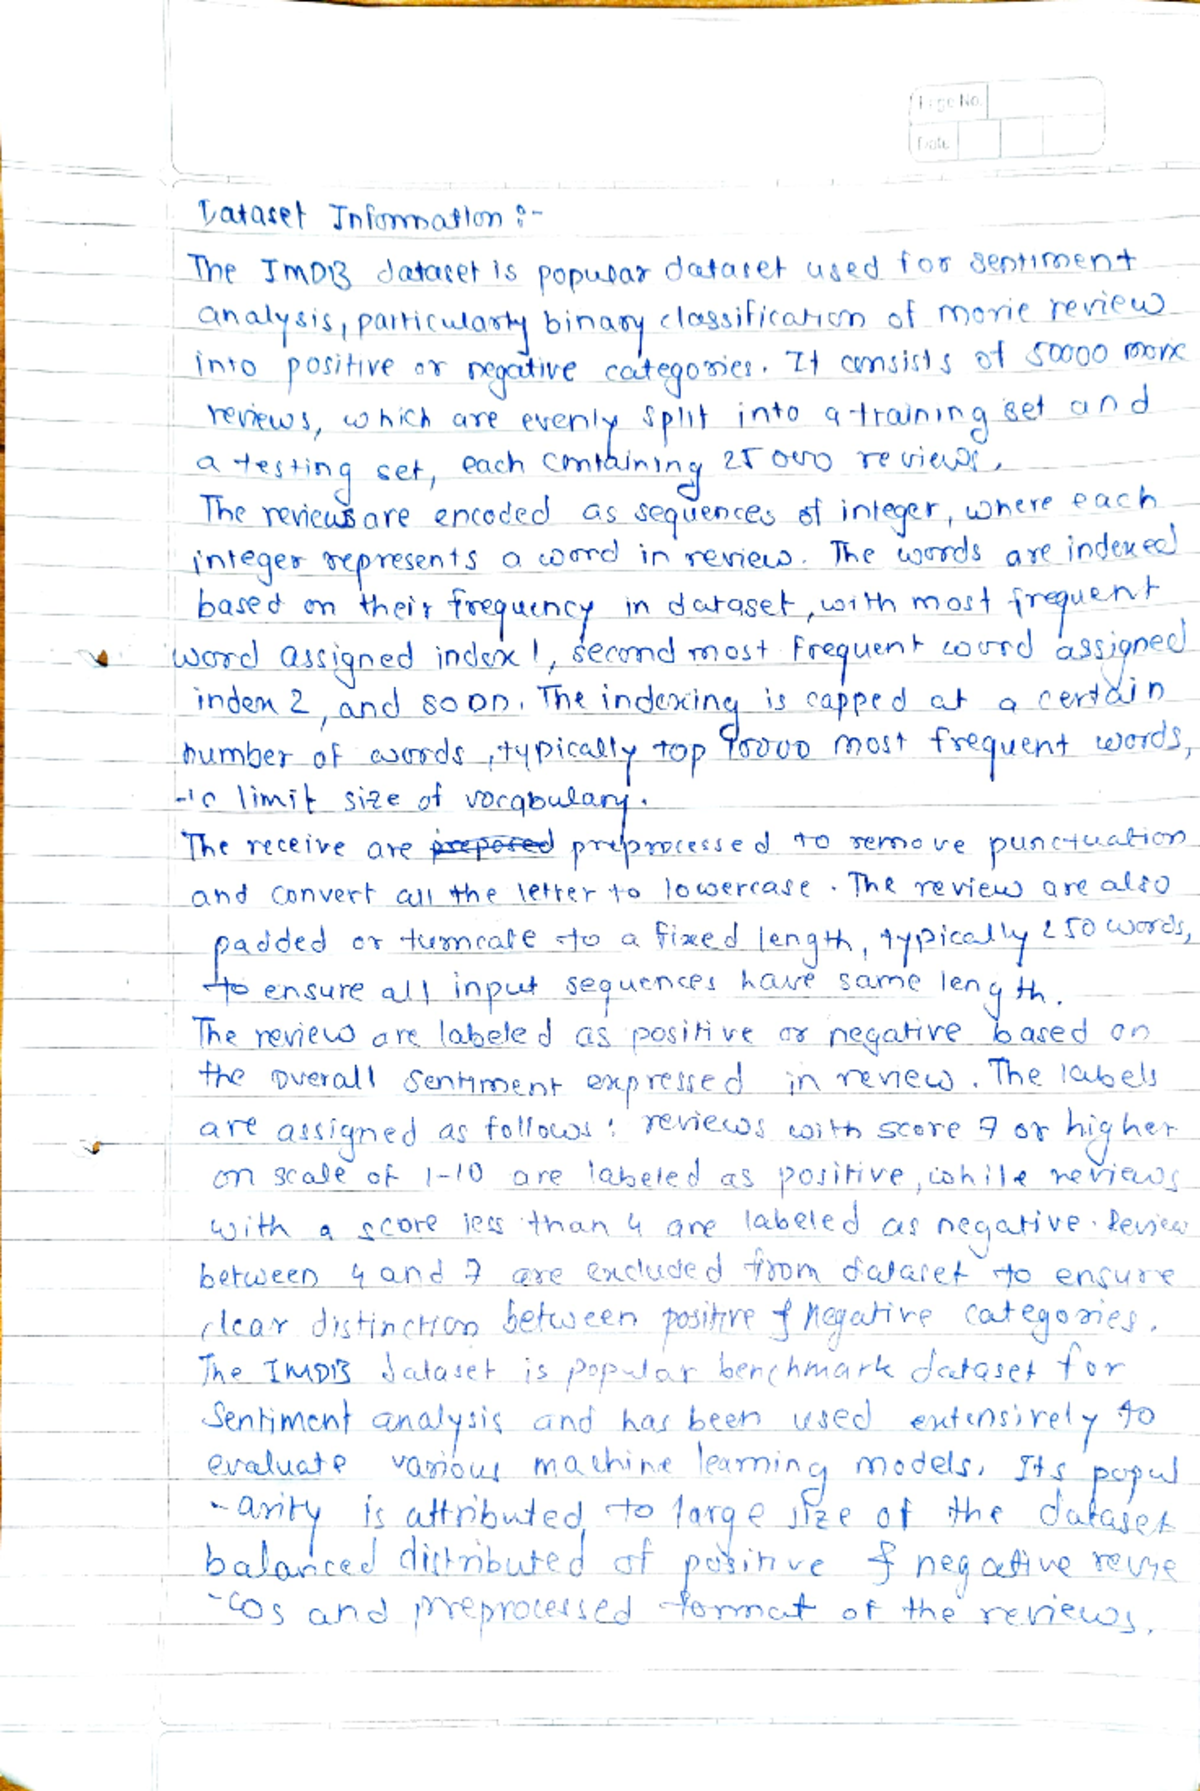 Page No.
Date
Dataset Information :-
The IMDB dataset is popular dataset used for sentiment
analysis, particularly binary classification of movie review
into positive or negative categories. It consists of 50000 more
reviews, which are evenly split into a training set and
a testing set, each containing 25000 reviews.
The reviews are encoded as sequences of integer, where each
integer represents a word in review. The words are indexed
based on their frequency in dataset, with most frequent
word assigned index 1, second most frequent word assigned
index 2, and so on. The indexing is capped at a certain
number of words, typically top most frequent words,
-to limit size of vocabulary.
The receive are preprocessed to remove punctuation
and convert all the letter to lowercase. The review are also
padded or turncate to a fixed length, typically 250 words,
to ensure all input sequences have same length.
The review are labeled as positive or negative based on
the overall sentiment expressed in review. The labels
are assigned as follows: reviews with score 7 or higher
on scale of 1-10 are labeled as positive, while reviews
with a score less than 4 are labeled as negative. Review
between 4 and 7 are excluded from dataset to ensure
clear distinction between positive & negative categories.
The IMDB dataset is popular benchmark dataset for
Sentiment analysis and has been used extensively to
evaluate various machine learning models. Its popul
-arity is attributed to large size of the dataset
balanced distributed of positive & negative revie
-ws and preprocessed format of the reviews.